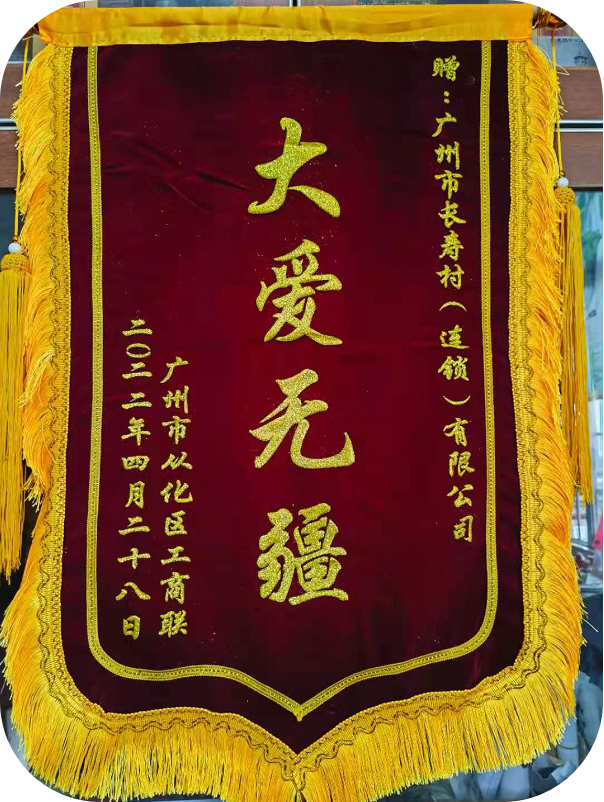 赠：广州市长寿村（连锁）有限公司
大爱无疆
广州市从化区工商联
二〇二二年四月二十八日